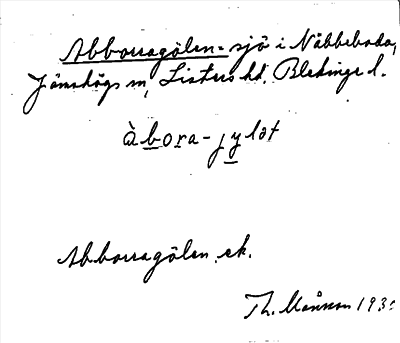 Abborragölen = sjö i Näbbeboda,
Jämshögs sn, Listers hd. Blekinge l.
àbora-jylət
Abborragölen. ek.
Th. Månsson 193